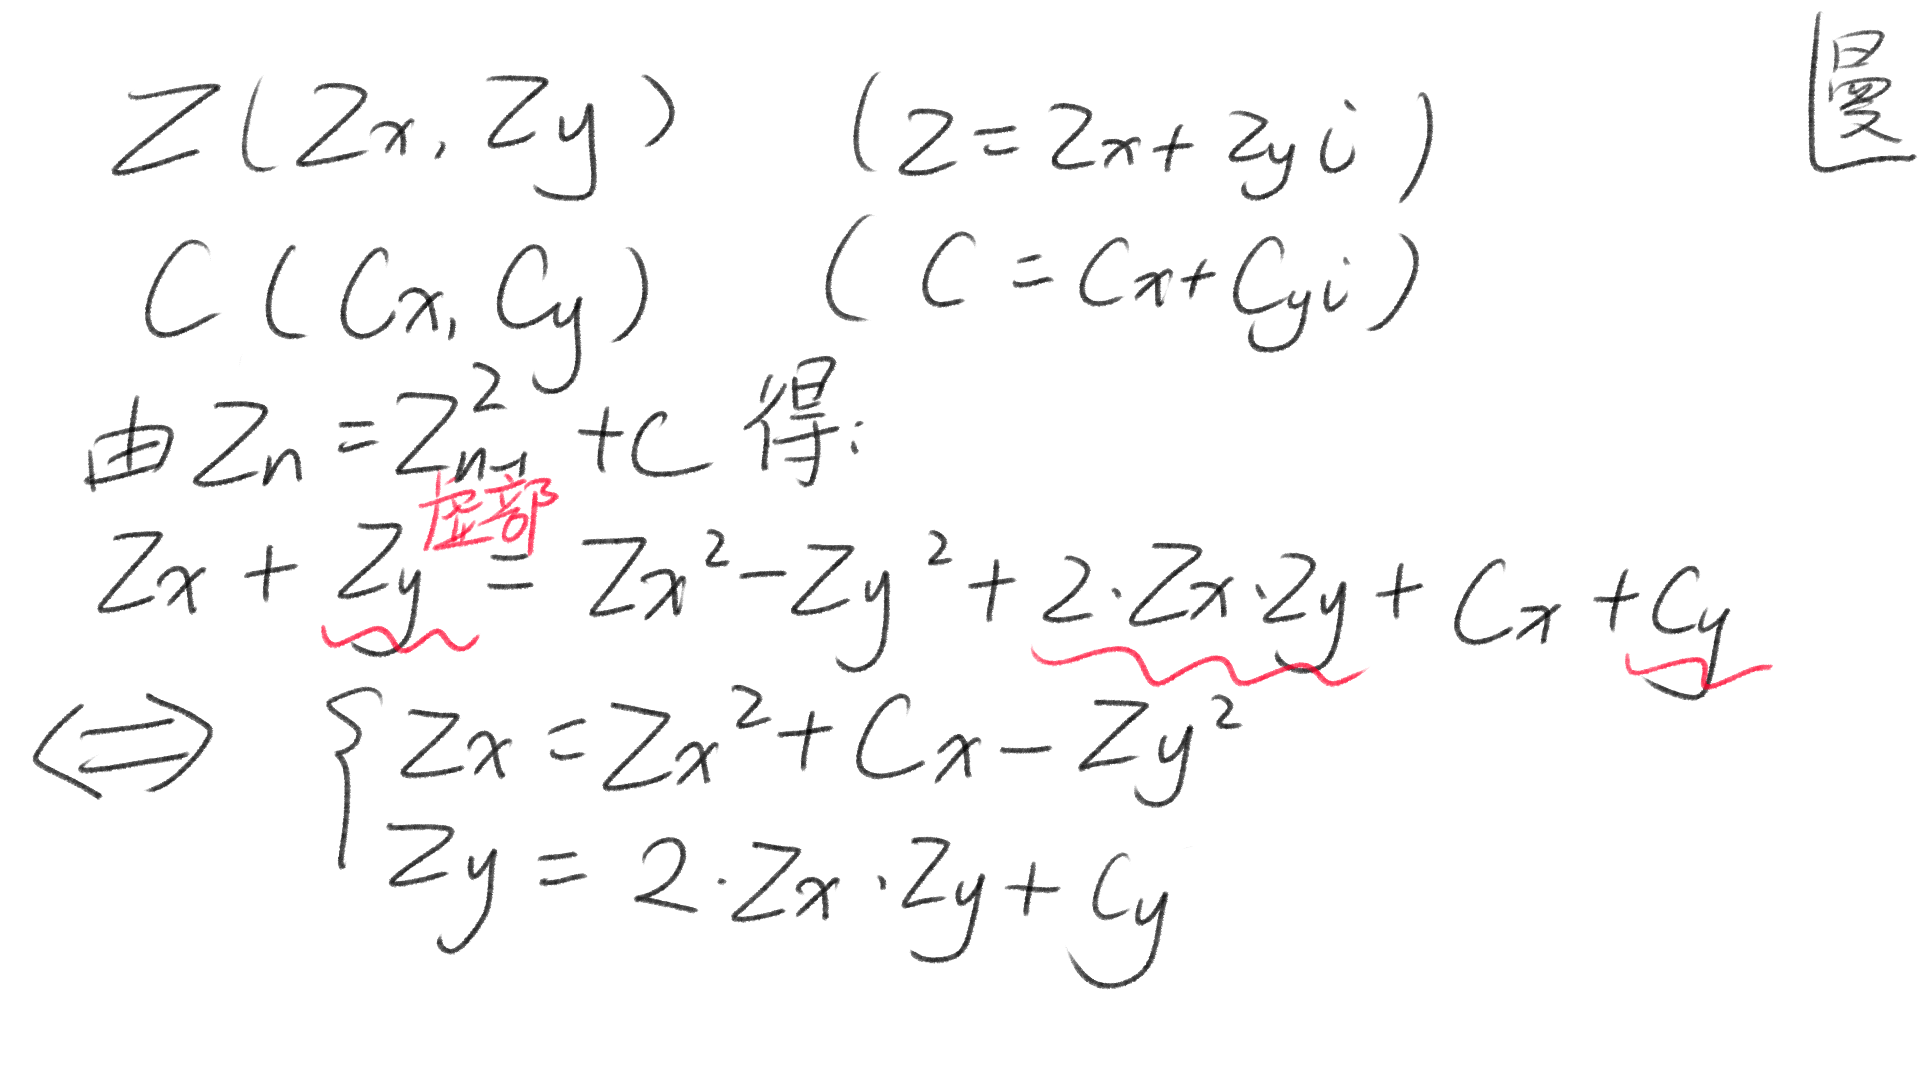 曼
Z(Zx, Zy) (Z=Zx+Zyi)
C(Cx, Cy) (C=Cx+Cyi)
由Zn=Z²n-1+C得:
虚部
Zx+Zy=Zx²-Zy²+2·Zx·Zy+Cx+Cy
⟺ { Zx=Zx²+Cx-Zy²
Zy=2·Zx·Zy+Cy